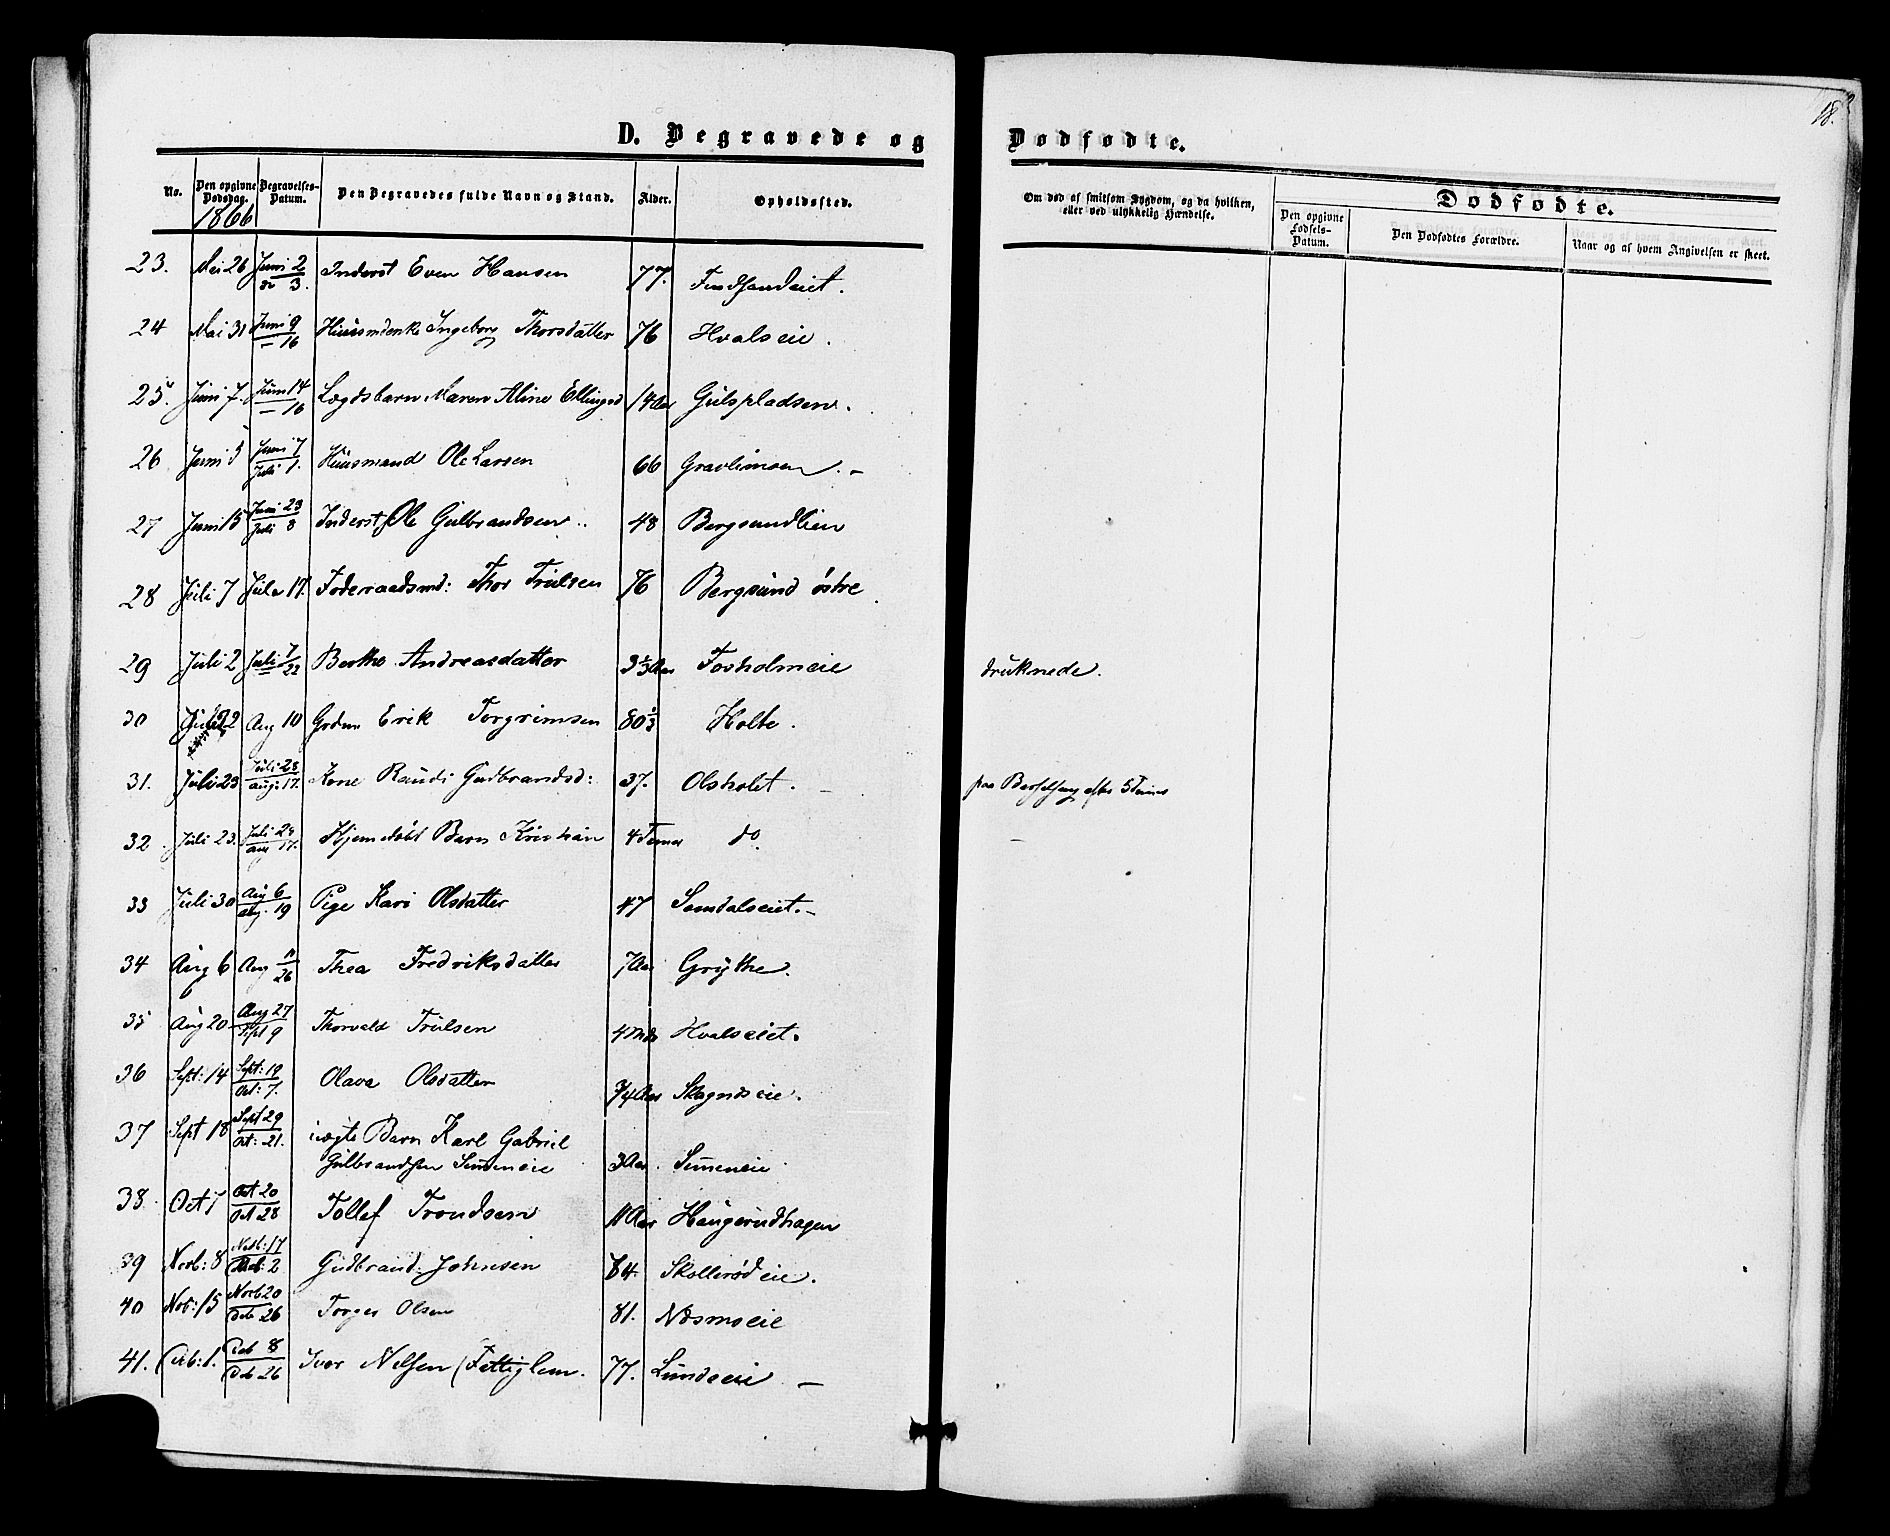 18.
D. Begravede og Dødfødte.
No. Den opgivne Dødsdag. Begravelses-Datum. Den Begravedes fulde Navn og Stand. Alder. Opholdssted. Om død af smitsom Sygdom, og da hvilken, eller ved ulykkelig Hændelse. Dødfødte.
Den opgivne Fødsels-Datum. Den Dødfødtes Forældre. Naar og af hvem Angivelsen er skeet.
1866
23. Mai 26 Juni 2 3. Inderst Even Hansen 77.
24 Mai 31 Juni 9 — 16 Huusmdenke Ingeborg Thorsdatter 76 Hvalseie.
25. Juni 7. Juni 14 — 16 Lægdsbarn Maren Aline Ellingsd 14 Aar Gulspladsen.
26 Juni 5 Juni 7 Juli 1. Huusmand Ole Larsen 66 Gravlimoen. —
27 Juni 15 Juni 23 Juli 8 Inderst Ole Gulbrandsen 48 Bergsundlien
28 Juli 7 Juli 17. Föderaadsmd: Thor Trulsen 76 Bergsund östre
29 Juli 2 Juli 7 22 Berthe Andreasdatter Aar Fosholmeie druknede.
30 Juli 22 Aug 10 Grdm Erik Torgrimsen 80⅓ Holte.
31. Juli 23 Juli 28 Aug. 17. Kone Randi Gudbrandsd: 37. Olsholet. paa Barselseng efter 5 Timer
32 Juli 23. Juli 28 Aug 17. Hjemdøbt Barn Kristian 4 Timer do.
33 Juli 30 Aug 6 Aug. 19 Pige Kari Olsdatter 47 Semdalseiet. —
34 Aug 6 Aug 11 26 Thea Fredriksdatter 7 Aar Grythe.
35 Aug 20 Aug 27 Sept 9 Thorvald Trulsen 4 Mdr Hvalseiet.
36 Sept: 14 Sept: 19 Oct: 7. Olava Olsdatter Aar Skogndseie.
37 Sept 18 Sept 29 Oct: 21. uægte Barn Karl Gabriel
Gulbrandsen Simeneie 3 Aar. Simeneie
38. Oct 7 Oct 20 Oct 28 Tollef Trondsen 11 Aar Haugerudhagen
39 Novb: 8 Novb: 17 Deb: 2 Gudbrand Johnsen 64. Skollerødeie.
40 Nob: 15 Novb 20 Deb 26 Torger Olsen 81. Næsmoeie
41. Decb: 1. Deb 8 Deb 26 Iver Nelsen (Fattiglem. 77. Lundeeie —